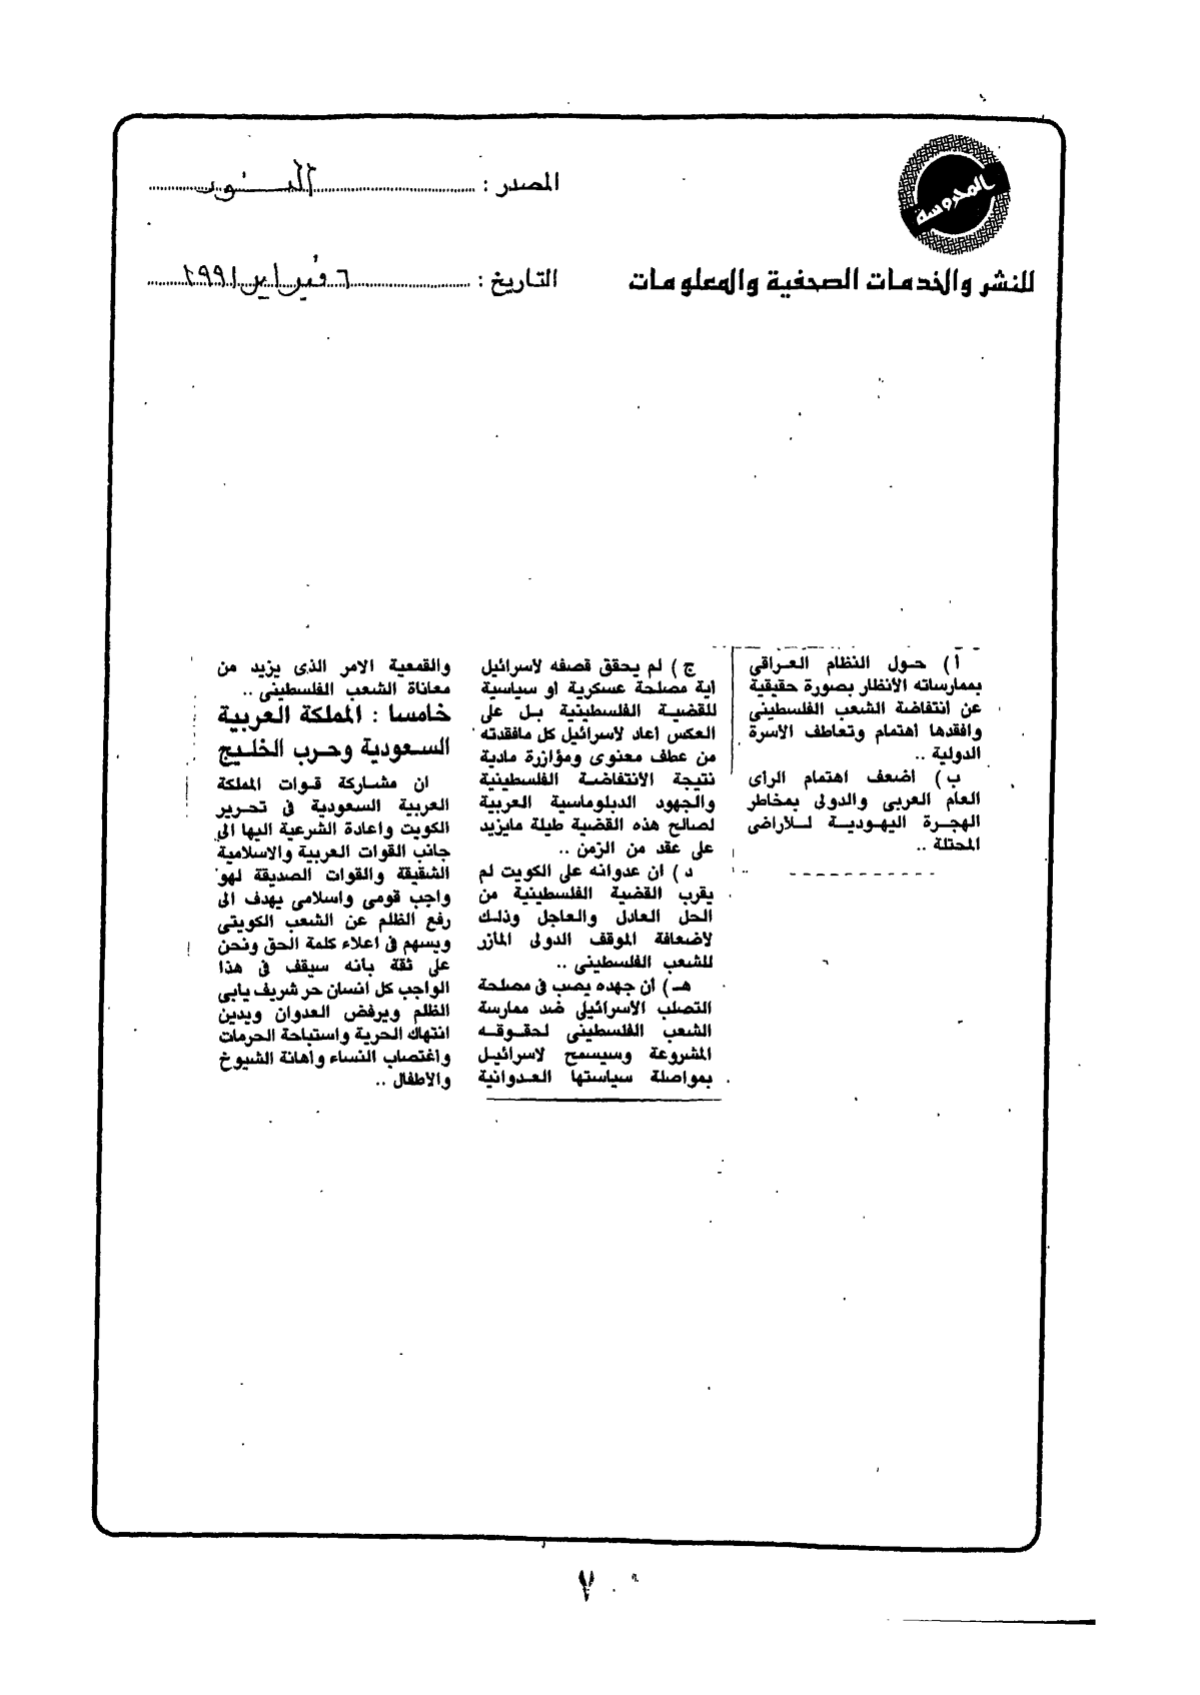 المحروسة
للنشر والخدمات الصحفية والمعلومات
المصدر : النور
التاريخ : ٦ فبراير ١٩٩١
أ) حول النظام العراقي
بممارساته الأنظار بصورة حقيقية
عن أنتفاضة الشعب الفلسطيني
وافقدها أهتمام وتعاطف الأسرة
الدولية ..
ب) اضعف اهتمام الراى
العام العربى والدولى بمخاطر
الهجرة اليهودية للاراضى
المحتلة ..
ج) لم يحقق قصفه لأسرائيل
اية مصلحة عسكرية او سياسية
للقضية الفلسطينية بل على
العكس اعاد لأسرائيل كل مافقدته
من عطف معنوى ومؤازرة مادية
نتيجة الأنتفاضة الفلسطينية
والجهود الدبلوماسية العربية
لصالح هذه القضية طيلة مايزيد
على عقد من الزمن ..
د) ان عدوانه على الكويت لم
يقرب القضية الفلسطينية من
الحل العادل والعاجل وذلك
لأضعافة الموقف الدولى المأزر
للشعب الفلسطينى ..
هـ) أن جهده يصب فى مصلحة
التصلب الأسرائيلى ضد ممارسة
الشعب الفلسطينى لحقوقه
المشروعة وسيسمح لاسرائيل
بمواصلة سياستها العدوانية
والقمعية الامر الذى يزيد من
معاناة الشعب الفلسطينى ..
خامسا : المملكة العربية
السعودية وحرب الخليج
ان مشاركة قوات المملكة
العربية السعودية فى تحرير
الكويت واعادة الشرعية اليها الى
جانب القوات العربية والاسلامية
الشقيقة والقوات الصديقة لهو
واجب قومى واسلامى يهدف الى
رفع الظلم عن الشعب الكويتى
ويسهم فى اعلاء كلمة الحق ونحن
على ثقة بأنه سيقف فى هذا
الواجب كل انسان حر شريف يابى
الظلم ويرفض العدوان ويدين
انتهاك الحرية واستباحة الحرمات
واغتصاب النساء وأهانة الشيوخ
والاطفال ..